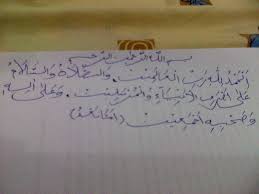 بسم الله الرحمن الرحيم
الحمد لله رب العالمين. والصلاة والسلام
على اشرف الأنبياء والمرسلين. وعلى اله
وصحبه اجمعين (امابعد)